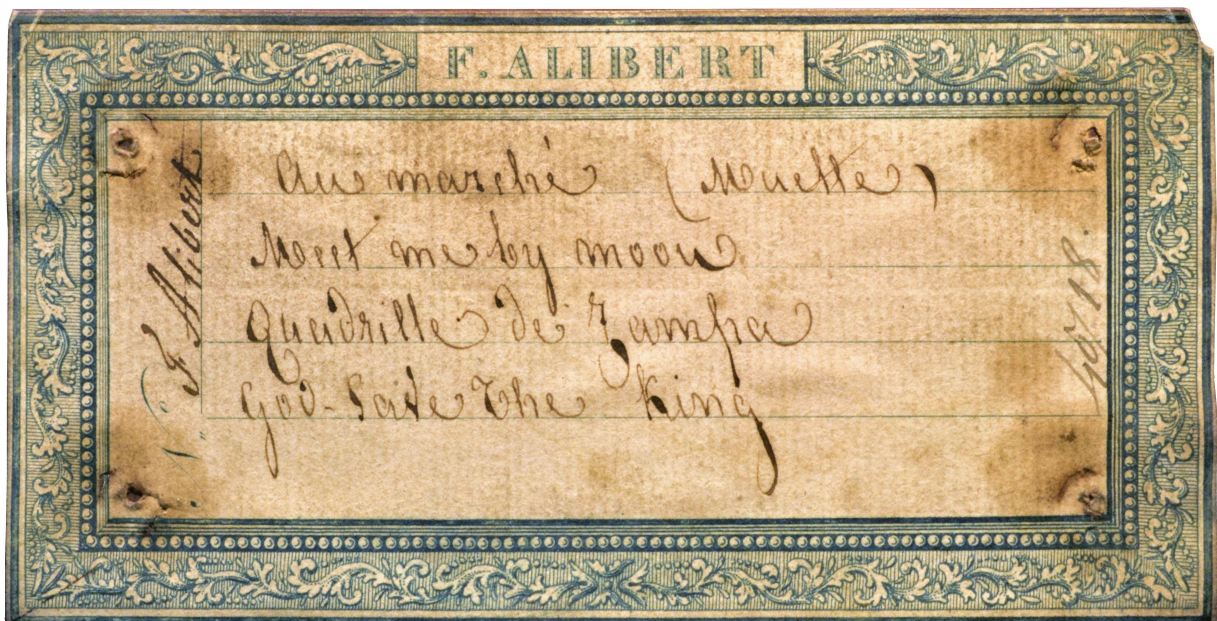 F. ALIBERT
F Alibert
Au marché (Muette)
Meet me by moon
Quadrille de Zampa
God-Save The King